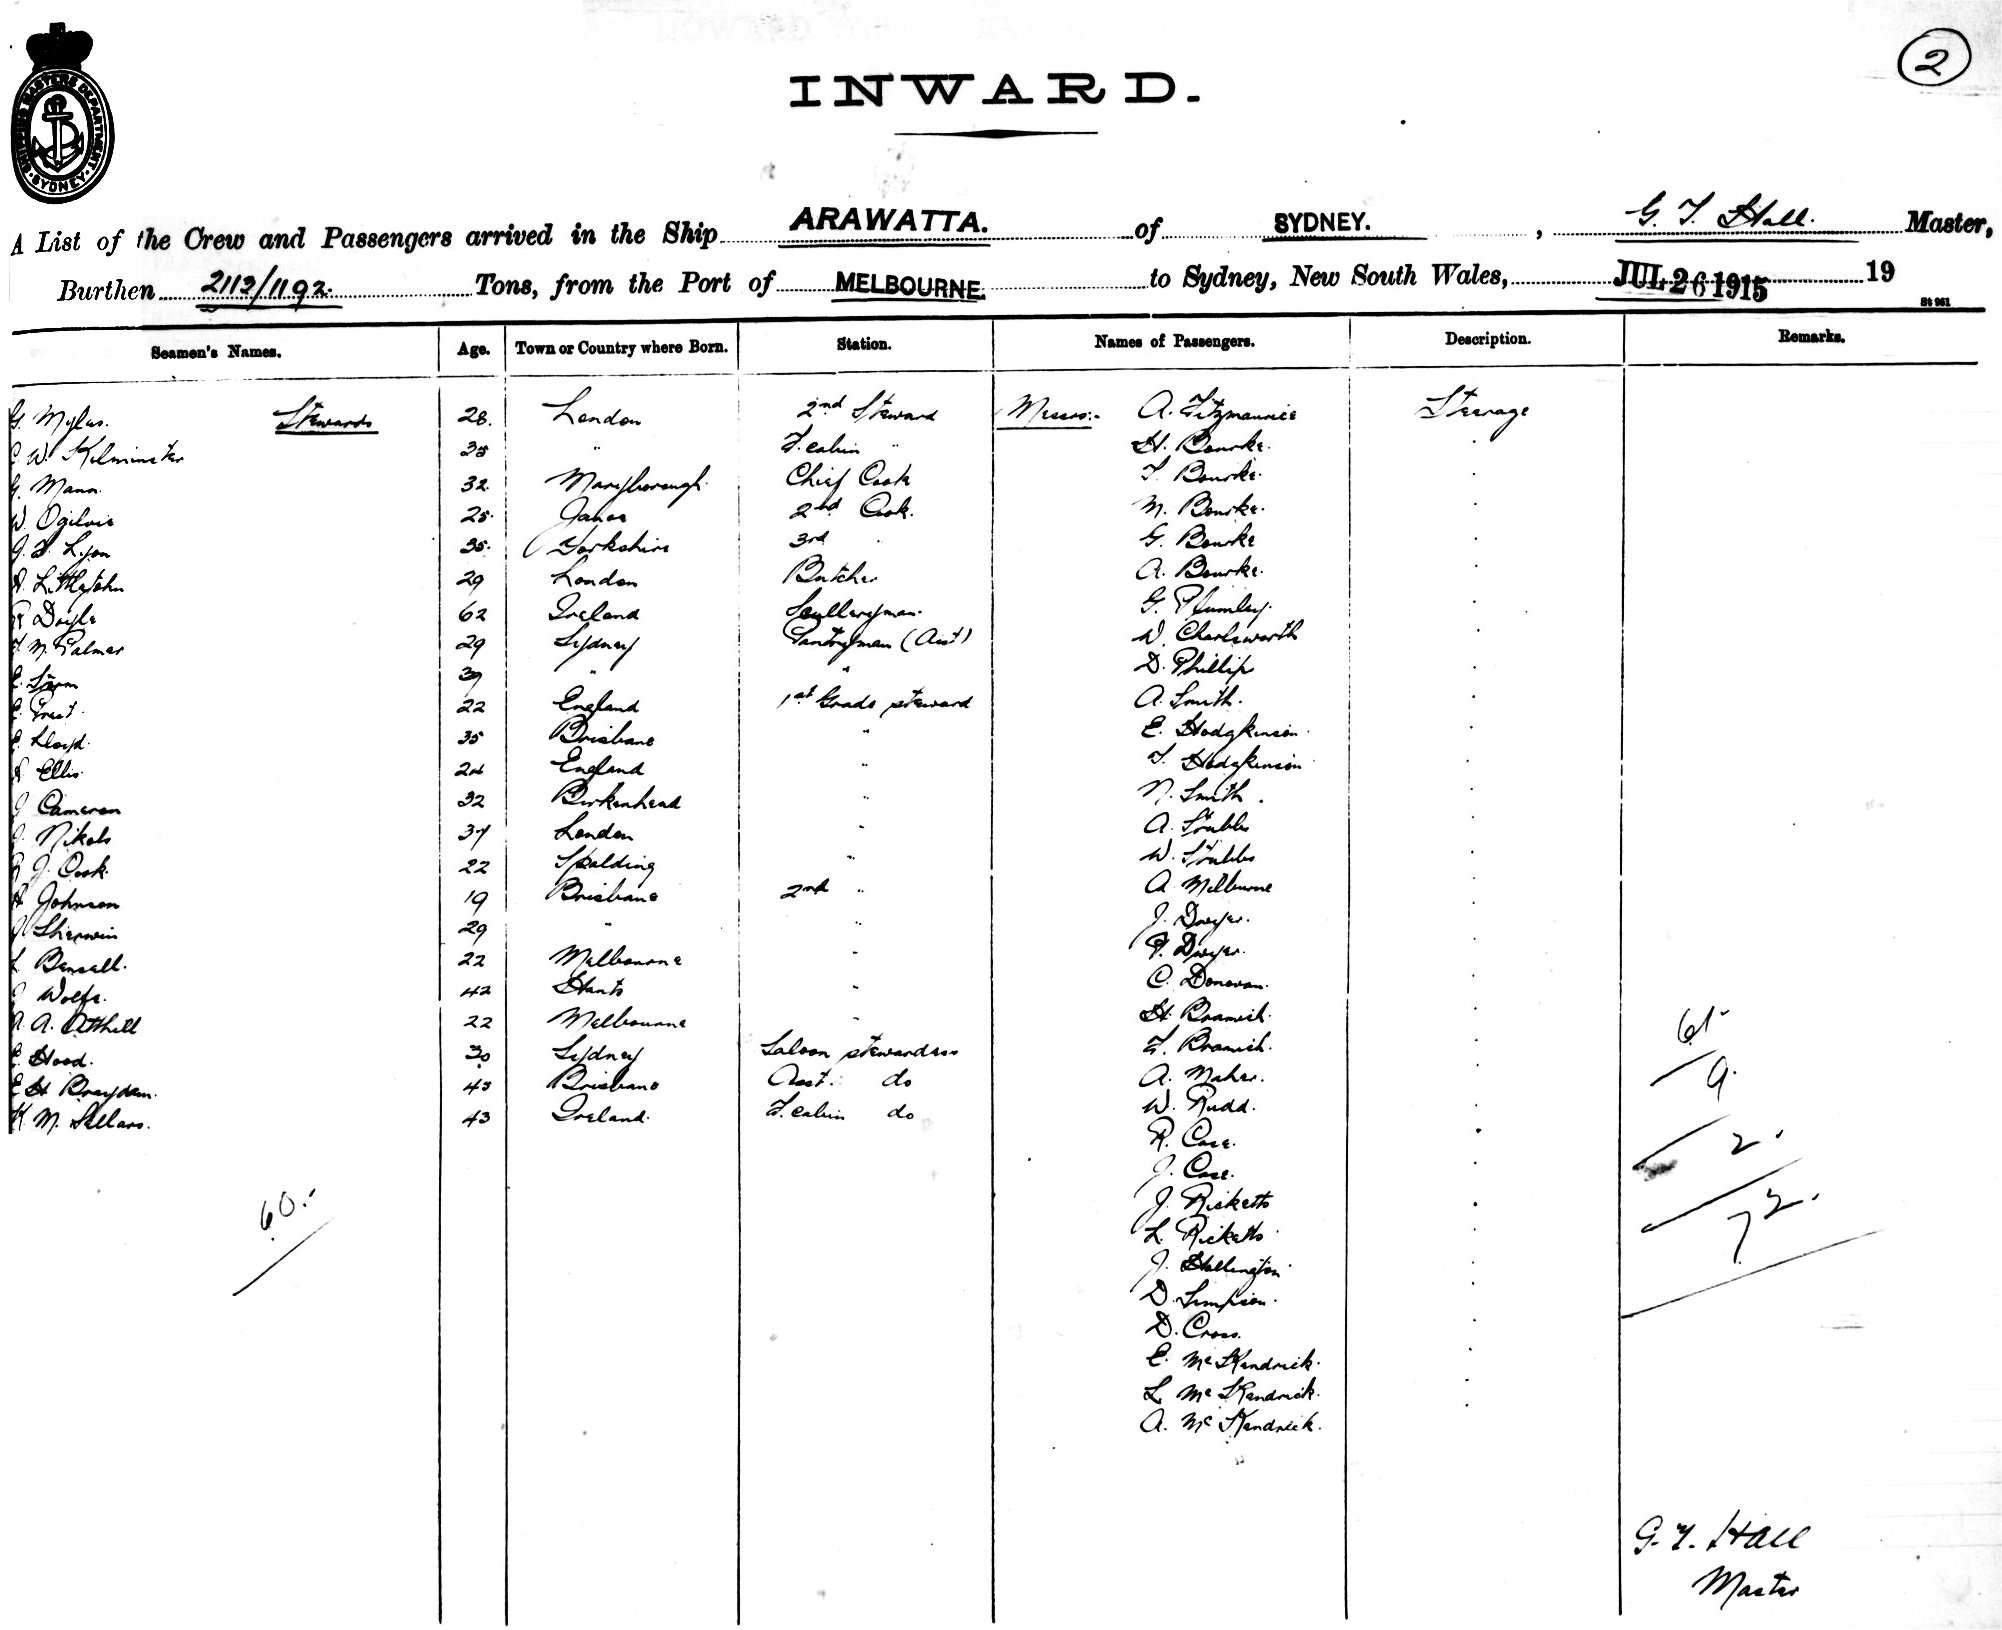 2
INWARD.
SHIPPING MASTERS DEPARTMENT. SYDNEY.
A List of the Crew and Passengers arrived in the Ship ARAWATTA. of SYDNEY. , G. T. Hall. Master,
Burthen 2112/1192. Tons, from the Port of MELBOURNE. to Sydney, New South Wales, JUL 26 1915 19
St 961
Seamen's Names. Age. Town or Country where Born. Station. Names of Passengers. Description. Remarks.
G. Myles. Stewards 28. London 2nd Steward Messrs:- A. Fitzmaurice Steerage
C. W. Kelminster 35 " F. cabin " H. Bourke.
G. Mann. 32 Maryborough. Chief Cook T. Bourke.
W. Ogilvie 25. 2nd Cook. M. Bourke.
J. F. Lyon 35. Yorkshire 3rd " G. Bourke
A. Littlejohn 29 London Butcher A. Bourke.
R Doyle 62 Ireland Sculleryman. G. Plumley.
F. M. Palmer 29 Sydney Pantryman (Asst) W. Charlesworth
E. 39 " " D. Phillip
E. 22 England 1st Grade steward A. Smith.
E. Lloyd. 35 Brisbane " E. Hodgkinson.
A Ellis. 24 England " T. Hodgkinson
J Cameron 32 Birkenhead " N. Smith.
J. Nikols 37 London " A. Stubbs
R J. Cook. 22 Spalding " W. Stubbs
A Johnson 19 Brisbane 2nd " A. Milburne
J Sherwin 29 " " J. Dwyer.
L Bensell. 22 Melbourne " P. Dwyer.
J Wolfe. 42 Hants " C. Donovan.
A. A. Atthill 22 Melbourne " H. Bramich.
E. Hood. 30 Sydney Saloon stewardess F. Bramich.
E H Brayden. 45 Brisbane Asst. do A. Maher.
K. M. Sellars. 43 Ireland. F. cabin do W. Rudd.
R. Case.
J. Case.
J. Ricketts
L. Ricketts
J. Hallington
D. Simpson.
D. Cross.
E. McKendrick.
L. McKendrick.
A. McKendrick.
60.-
61-
9.
2.
72.
G. T. Hall
Master